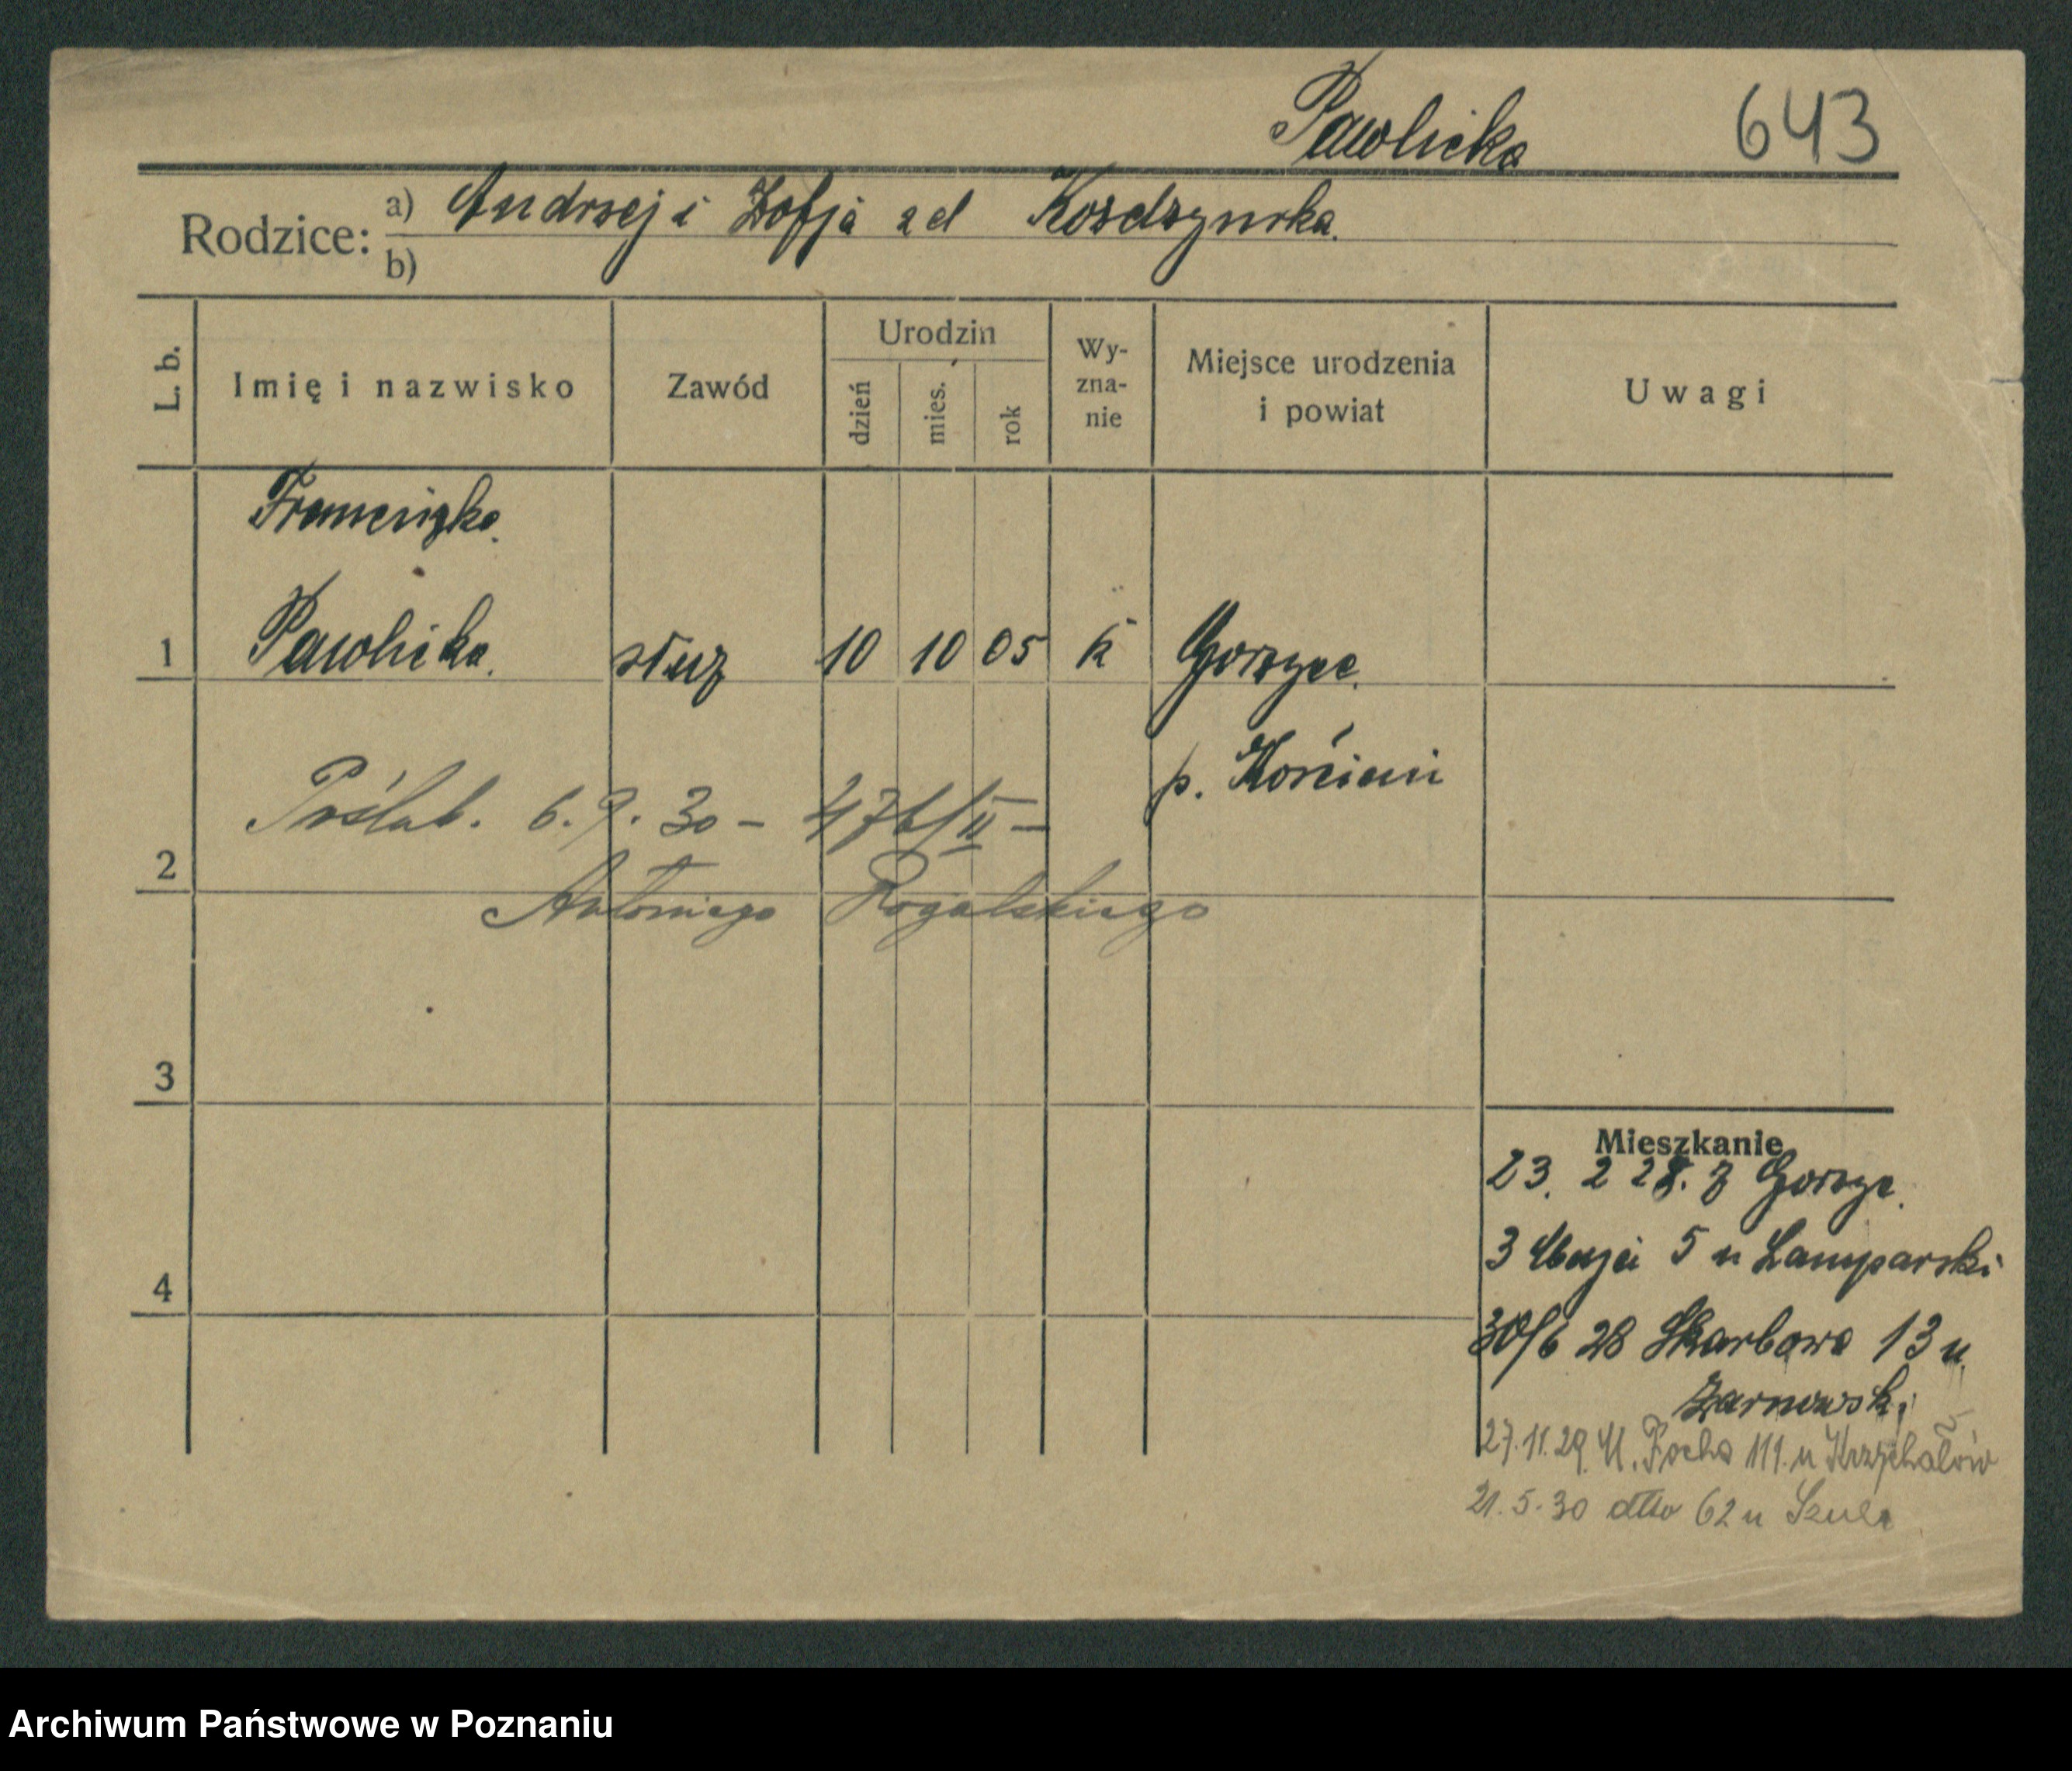 Pawlicka 643
Rodzice: a) Andrzej i Zofja zd Kozdrzynska.
b)
L. b. Imię i nazwisko Zawód Urodzin dzień mies. rok Wy-zna-nie Miejsce urodzenia i powiat Uwagi
Franciszka
1 Pawlicka służ 10 10 05 k Gorzyce.
p. Kościan
Poślub. 6.9.30 – 476/II –
2
Antoniego Rogalskiego
3
Mieszkanie
23. 2 28. z Gorzyc.
3 Maja 5 u Lamparski
4
30/6 28 Skarbowa 13 u
Żarnowski
27.11.29 M. Focha 111. u
21.5.30 dtto 62 u Szulc
Archiwum Państwowe w Poznaniu